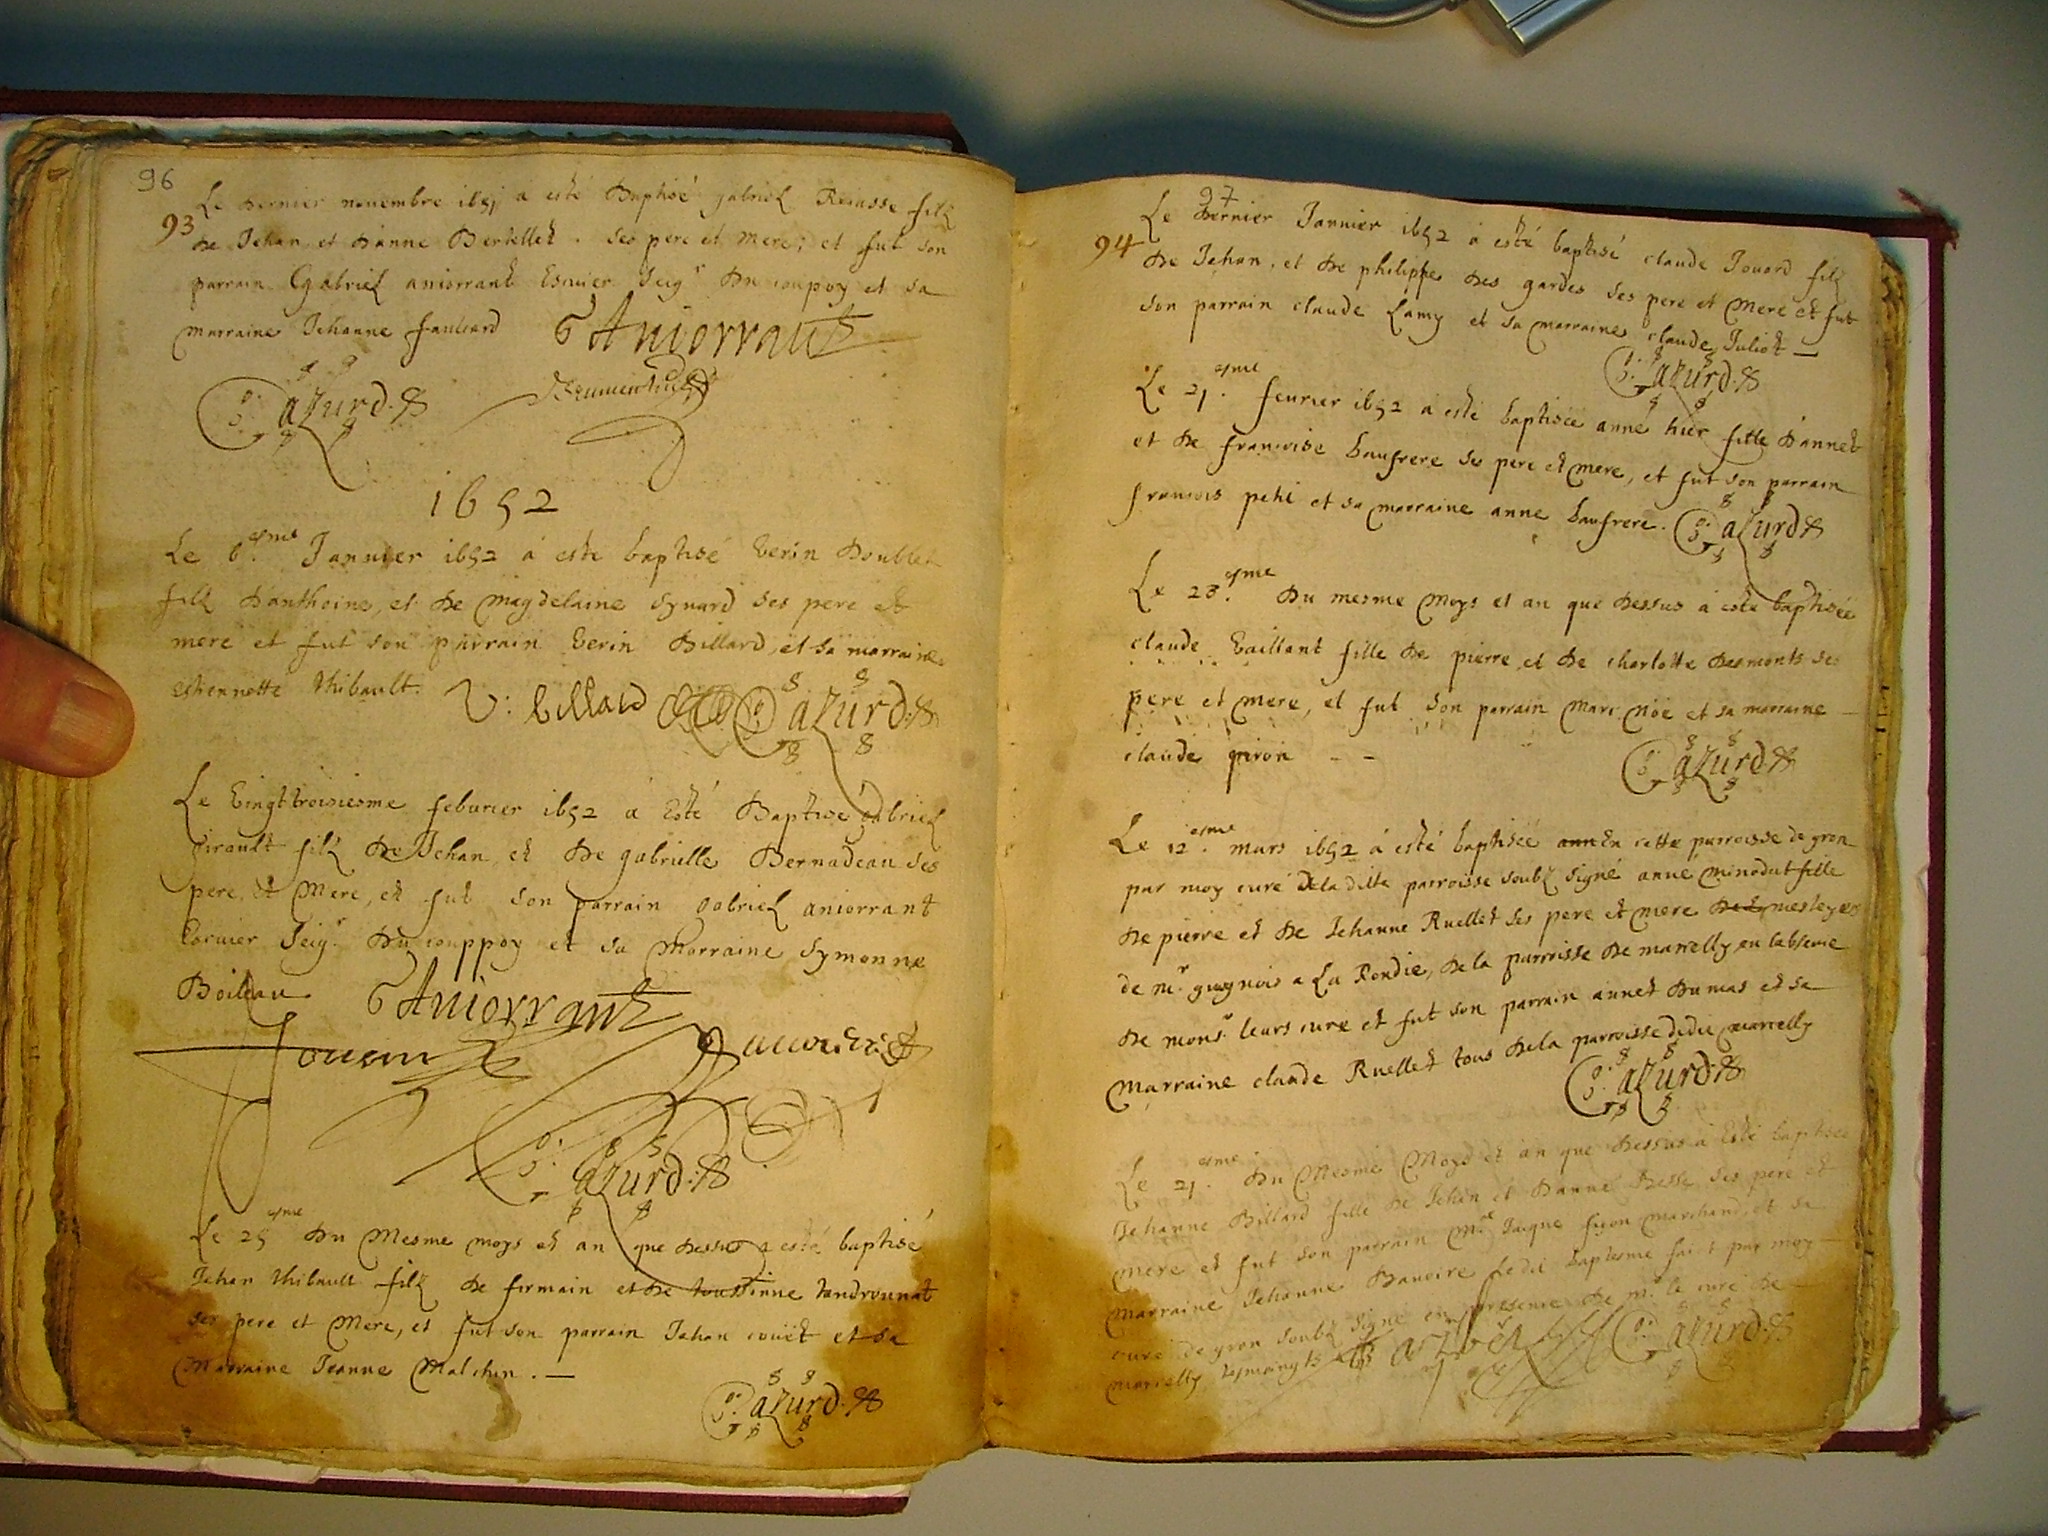 96
93
Le dernier novembre 1651 a esté Baptisé gabriel Rasasse filz
de Jehan et d'anne Bertellet. ses pere et mere, et fut son
parrain Gabriel aniorrant Escuier Seigr du coupoy et sa
marraine Jehanne
G Aniorrant
azurd
1652
Le 6esme Janvier 1652 á esté baptisé verin doublet
filz d'anthoine, et de magdelaine synard ses pere et
mere et fut son parrain verin Billard et sa marraine
estiennette thibault.
V: billard
azurd
Le vingttroisiesme febvrier 1652 a Esté Baptisé Gabriel
girault filz de Jehan et de gabrielle Bernadeau ses
pere et Mere, et fut son parrain gabriel aniorrant
Escuier Seigr du couppoy et sa Marraine Symonne
Boileau
G Aniorrant
azurd
Le 25esme du Mesme moys et an que dessus a esté baptisé
Jehan thibault filz de firmain et de
ses pere et Mere, et fut son parrain Jehan couët et sa
Marraine Jeanne Malchin.
azurd
97
94
Le dernier Janvier 1652 a esté baptisé claude Jouard filz
de Jehan, et de philippe des gardes ses pere et Mere et fut
son parrain claude Lamy et sa marraine claude Juliot
azurd
Le 21esme fevrier 1652 a esté baptisée anne hier fille d'annet
et de francoise baufrere ses pere et mere, et fut son parrain
francois petit et sa marraine anne baufrere.
azurd
Le 28esme du mesme moys et an que dessus a esté baptisée
claude vaillant fille de pierre et de charlotte desmonts ses
pere et mere, et fut son parrain Marc Noë et sa marraine
claude giron
azurd
Le 12esme mars 1652 á esté baptisée en cette parroisse de gron
par moy curé de la ditte parroisse soubz signé anne minodut fille
de pierre et de Jehanne Ruellet ses pere et mere mesteyers
de mr guognois a La Rondie, de la parroisse de marcelly en labsence
de monsr leurs curé et fut son parrain annet dumas et sa
Marraine claude Ruellet tous de la parroisse dudit marcelly
azurd
Le 21esme du Mesme Moys et an que dessus a Esté baptisée
Jehanne Billard fille de Jehan et d'anne ses pere et
mere et fut son parrain Me Jacque marchand, et sa
marraine Jehanne Bauoire Ledit baptesme faict par moy
curé de gron soubz signé en presence de mr le curé de
marcelly
azurd